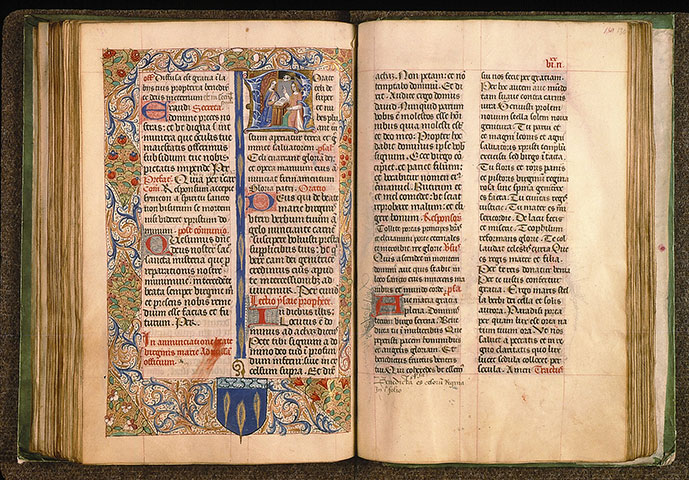 off Diffusa est gracia i la
biis tuis propterea benedix
Exaudi Secreta
domine preces no
stras: et ut digna sint
munera que oculis tue
maiestatis offerimus
subsidium tue nobis
pietatis impende Per
Prefat. Quia per icar
Com. Responsum accepit
symeon a spiritu sancto
non visurum se mortem
nisi videret xpristum do
minum. post communio
Quesumus domine
deus noster sac
sancta misteria que
preparationis nostre
munimine intercedente
beata semper virgine
et presens nobis reme
dium esse facias et fu
turum. Per
In annunciatione
virginis marie Ad
officium.
Rorate
celi de
super
et nu
bes plu
ant iu
stum aperiatur terra et ger
minet salvatorem psal
Celi enarrant gloria dei
et opera manuum eius a
nunciat firmamentum
Gloria patri. Oratio
Deus qui de beate
marie virginis
utero verbum tuum a
gelo nunciante carne
suscipere voluisti presta
supplicibus tuis: ut q
vere eam dei genitrice
credimus eius apud
te intercessionibus ad
iuvemur. Per eundem
Lectio ysaie prophete.
In diebus illis:
Locutus est do
minus ad achaz dicens
Pete tibi signum a do
mino deo tuo in profun
dum inferni: sive in ex
celsum supra. Et dixit
achaz. Non petam: et no
temptabo dominum. Et di
xit. Audite ergo domus
david. Nunquid parum
vobis e molestos esse homi
nibus quia molesti estis
et deo meo? Propter hoc
dabit dominus ipse vob
signum. Ecce virgo co
cipiet et pariet filium:
et vocabitur nomen eius
emanuel. Butirum et
et mel comedet: ut sciat
reprobare malum: et eli
gere bonum. Responsor
Tollite portas principes vras
et elevamini porte eternales
et introibit rex glorie. Vsus
Quis ascendit in montem
domini aut quis stabit in
loco sancto eius innocens ma
nibus et mundo corde. psa
Ave maria gracia
plena. Dominus
tecum virgo serena. Bene
dicta tu i mulieribus Que
peperisti pacem hominibus
et angelis gloriam. Et
benedictus fructus ventris
tui. Qui coheredes ut essem
Benedicta es celorum regina
in i folio
vi.n.
sui nos fecit per graciam.
Per hoc autem ave mu
tam suave contra carnis
iura Genuisti prolem
novum stella solem nova
genitura. Tu parvi et
et magni leonis et agni
salvatoris xpristi templum
extitisti sed virgo intacta.
Tu floris et roris panis
et pastoris virginum regina
rosa sine spina genitrix
es facta. Tu civitas regis
iusticie. Tu mater es mi
sericordie. De lacu fecis
et miserie. Teophilum
reformans glorie. Te col
laudat celestis curia Que
es regis mater et filia.
Per te reis donatur venia
Per te iustis confertur
gracia. Ergo maris stel
la verbi dei cella et solis
aurora. Paradisi porta
per quam lux est orta na
tum tuum ora. Ut nos
salvet a peccatis et in re
gno claritatis quo lux
lucet sedulo collocet per
secula. Amen Tractus